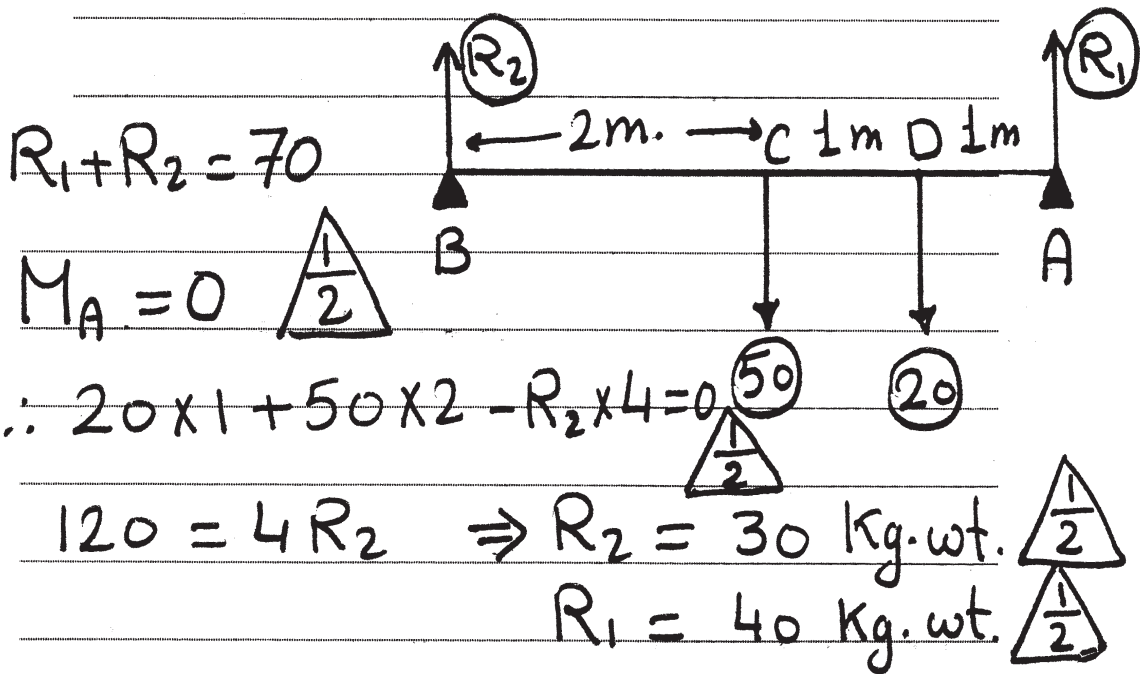 R₂ R₁
← 2m. → C 1m D 1m
R₁+R₂ = 70
B A
M_A = 0 1/2
50 20
∴ 20×1 + 50×2 - R₂×4=0 1/2
120 = 4R₂ ⇒ R₂ = 30 Kg.wt. 1/2
R₁ = 40 Kg.wt. 1/2